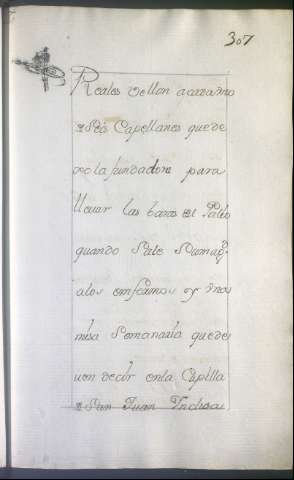 307
Reales Vellon acada vno
de Seis Capellanes que de
xo la fundadora para
lleuar las baras del Palio
quando Sale Su mag.d
alos enfermos y vna
misa Semanaria que de
uen decir enla Capilla
de San Juan Yndiosa